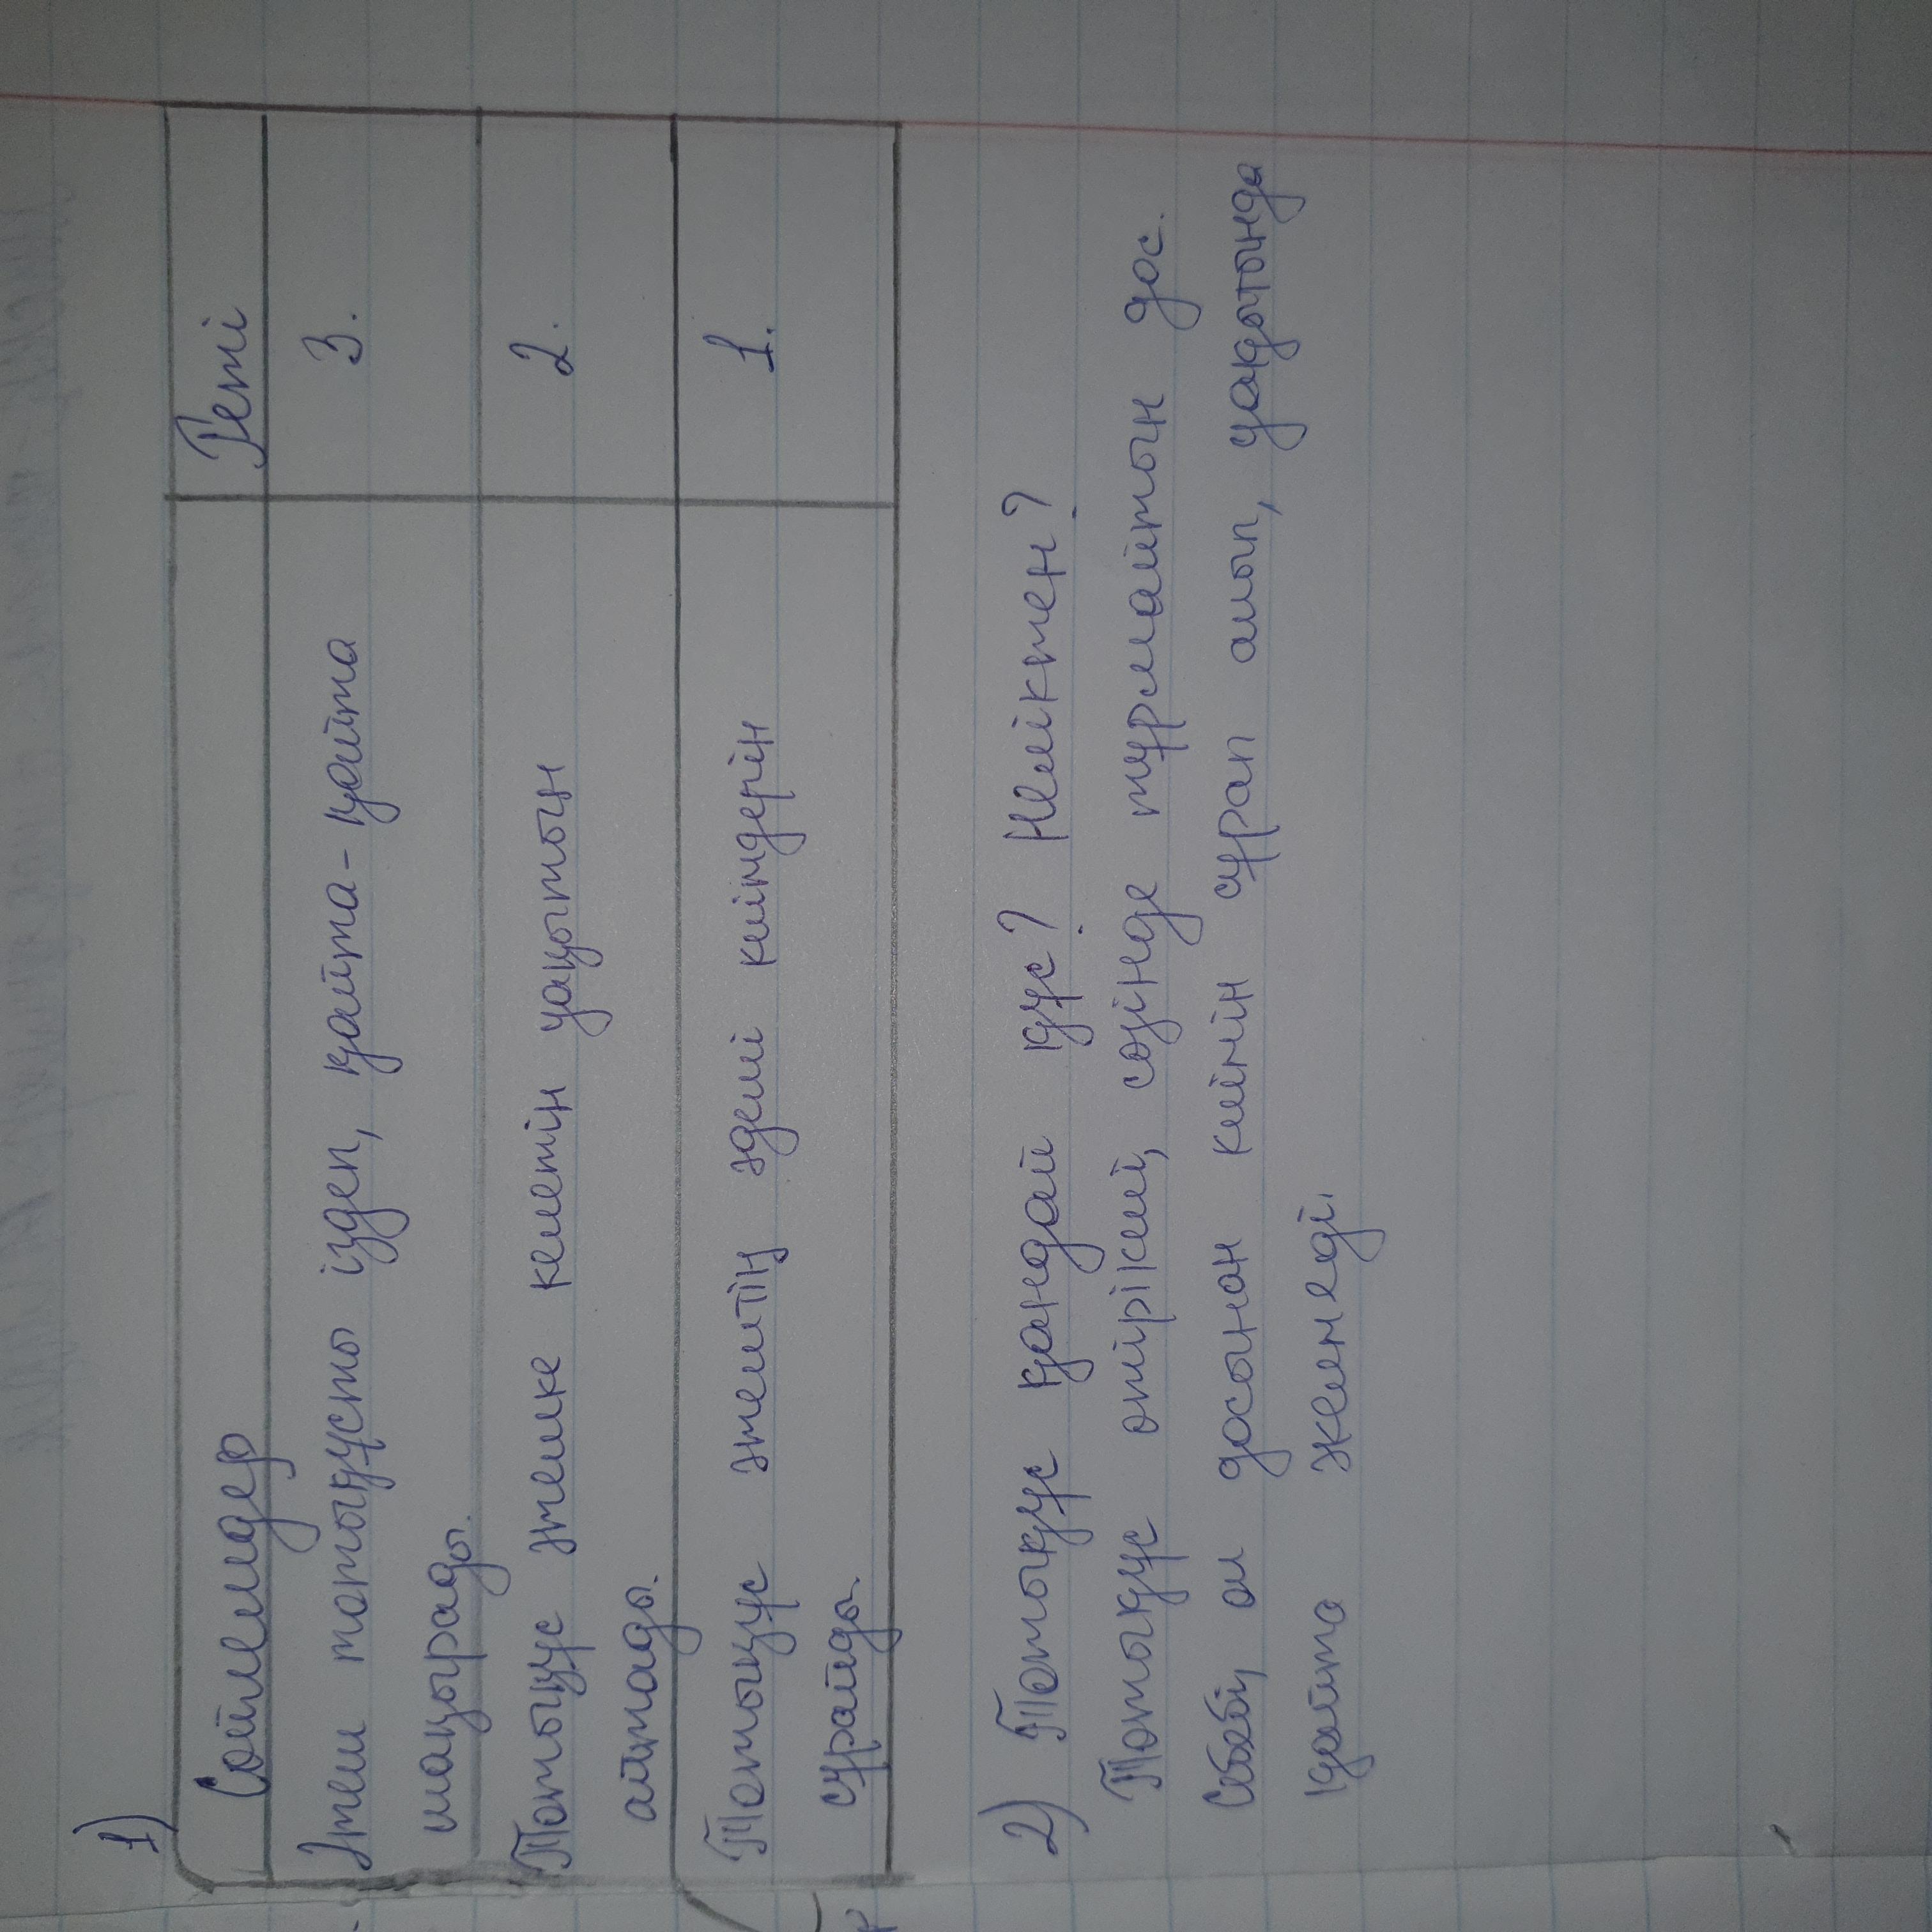 1)
Сөйлемдер Реті
Әтеш тотықусты іздеп, қайта-қайта 3.
шақырады.
Тотықұс әтешке келетін уақытын 2.
айтады.
Тотықұс әтештің әдемі киімдерін 1.
сұрайды.
2) Тотықұс қандай құс? Неліктен?
Тотықұс өтірікші, сөзінде тұрмайтын дос.
Себебі, ол досынан киімін сұрап алып, уақытында
қайта келмеді.